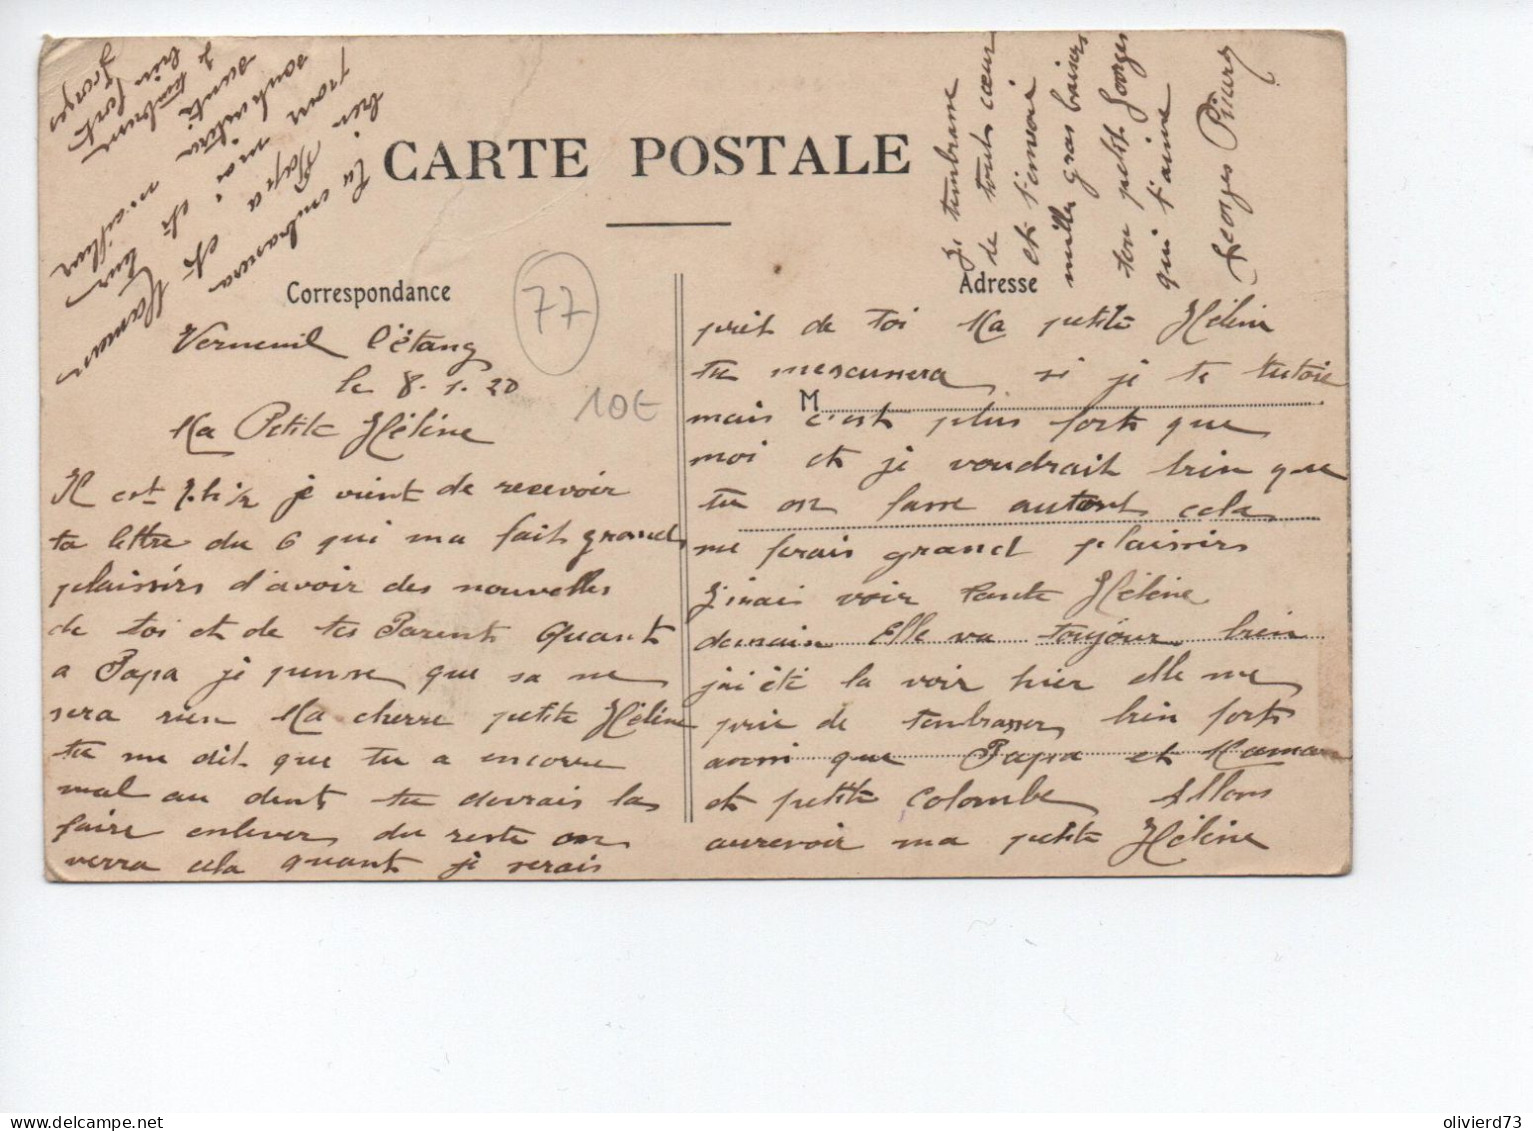 CARTE POSTALE
Correspondance
Adresse
M
77
10€
Verneuil l'étang
le 8.1.20
Ma Petite Hélène
Il est je vient de recevoir
ta lettre du 6 qui ma fait grand
plaissirs d'avoir des nouvelles
de toi et de tes Parents Quant
a Papa je pense que sa ne
sera rien Ma cherre petite Hélène
tu me dit que tu a encorre
mal au dent tu devrais las
faire enlever du reste on
verra cela quant je serais
prêt de toi Ma petite Hélène
tu mescussera si je te tutoie
mais c'est plus fort que
moi et je voudrait bien que
tu en fasse autant cela
me ferais grand plaissirs
J'irai voir tante Hélène
demain Elle va toujour bien
j'ai été la voir hier elle me
prie de tembrasser bien fort
ainsi que Papa et Maman
et petite Colombe Allons
aurevoir ma petite Hélène
Je tembrasse
de tout cœur
et t'envoie
milles gros baisers
ton petit Georges
qui t'aime
Georges
tu embrassera
bien Papa et Maman
pour moi et leur
souhaitera meilleur
santé
Je tembrasse
bien fort
Georges
olivierd73